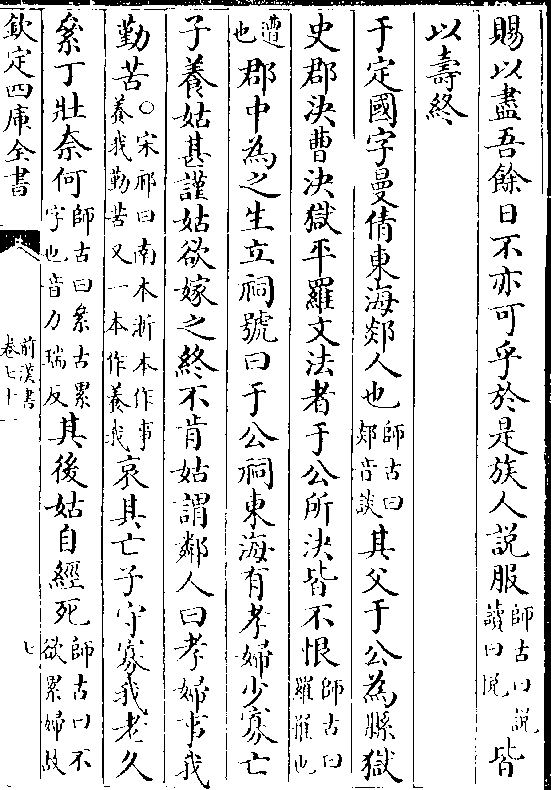 賜以盡吾餘日不亦可乎於是族人說服師古曰說讀曰悅皆
以壽終
于定國字曼倩東海郯人也師古曰郯音談其父于公為縣獄
史郡決曹決獄平羅文法者于公所決皆不恨師古曰羅罹也
遭也郡中為之生立祠號曰于公祠東海有孝婦少寡亡
子養姑甚謹姑欲嫁之終不肯姑謂鄰人曰孝婦事我
勤苦○宋祁曰南本浙本作事養我勤苦又一本作養我哀其亡子守寡我老久
絫丁壯奈何師古曰絫古累字也音力瑞反其後姑自經死師古曰不欲累婦故
欽定四庫全書
前漢書
卷七十一
七